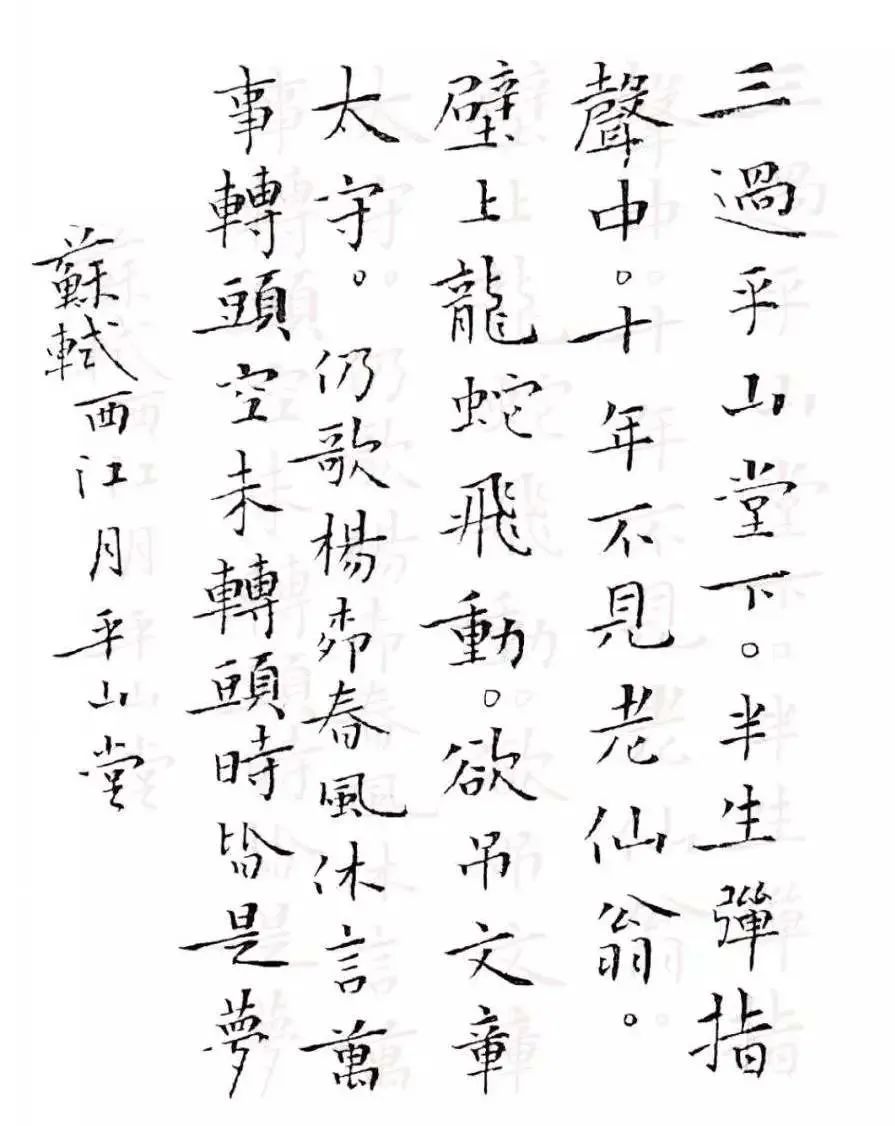 三過平山堂下。半生彈指
聲中。十年不見老仙翁。
壁上龍蛇飛動。欲吊文章
太守。仍歌楊桺春風休言萬
事轉頭空未轉頭時皆是夢
蘇軾西江月平山堂